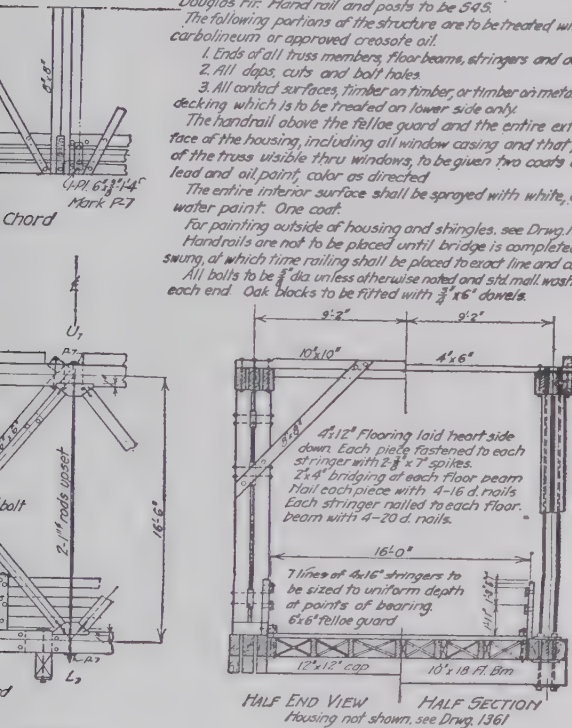 Douglas Fir. Hand rail and posts to be S4S.
The following portions of the structure are to be treated
carbolineum or approved creosote oil.
1. Ends of all truss members, floorbeams, stringers and
2. All daps, cuts and bolt holes.
3. All contact surfaces, timber on timber, or timber on metal
decking which is to be treated on lower side only.
The handrail above the felloe guard and the entire
face of the housing, including all window casing and that
of the truss visible thru windows, to be given two coats
lead and oil paint, color as directed
The entire interior surface shall be sprayed with white,
water paint. One coat.
For painting outside of housing and shingles. see Drwg.
Handrails are not to be placed until bridge is completed
swung, at which time railing shall be placed to exact line and
All bolts to be dia unless otherwise noted and std. mall. wash
each end. Oak blocks to be fitted with 3/4"x6" dowels.
8"x8"
Mark P-7
Chord
U7
P.7
2-1⅛" rods upset
16'-6"
bolt
P.7
9'-2"
9'-2"
10"x10"
4"x6"
8"x8"
4"x12" Flooring laid heart side
down. Each piece fastened to each
stringer with 2-3/8"x7" spikes.
2"x4" bridging at each floor beam
Nail each piece with 4-16 d. nails
Each stringer nailed to each floor.
beam with 4-20 d. nails.
16'-0"
7 lines of 4x16" stringers to
be sized to uniform depth
at points of bearing.
6"x6" felloe guard
12"x12" cap
10"x18" Fl. Bm
HALF END VIEW
HALF SECTION
Housing not shown, see Drwg. 1361